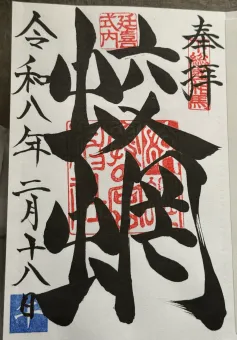 奉拝
延喜
式内
蛟蝄
令和八年二月十八日